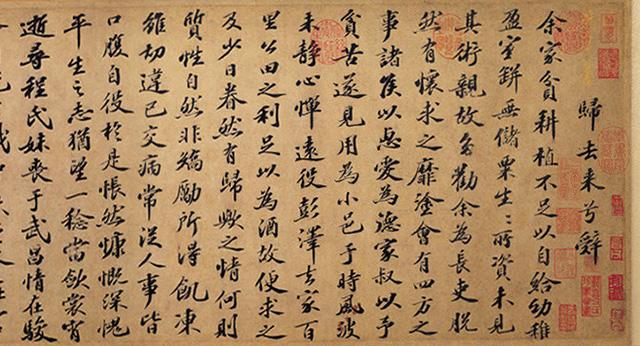 歸去来兮辭
余家貧耕植不足以自給幼稚
盈室缾無儲粟生〻所資未見
其術親故多勸余為長吏脫
然有懷求之靡塗會有四方之
事諸侯以惠愛為德家叔以予
貧苦遂見用為小邑于時風波
未靜心憚遠役彭澤去家百
里公田之利足以為酒故便求之
及少日眷然有歸歟之情何則
質性自然非矯勵所得飢凍
雖切違已交病常從人事皆
口腹自役於是悵然慷慨深愧
平生之志猶望一稔當斂裳宵
逝尋程氏妹喪于武昌情在駿